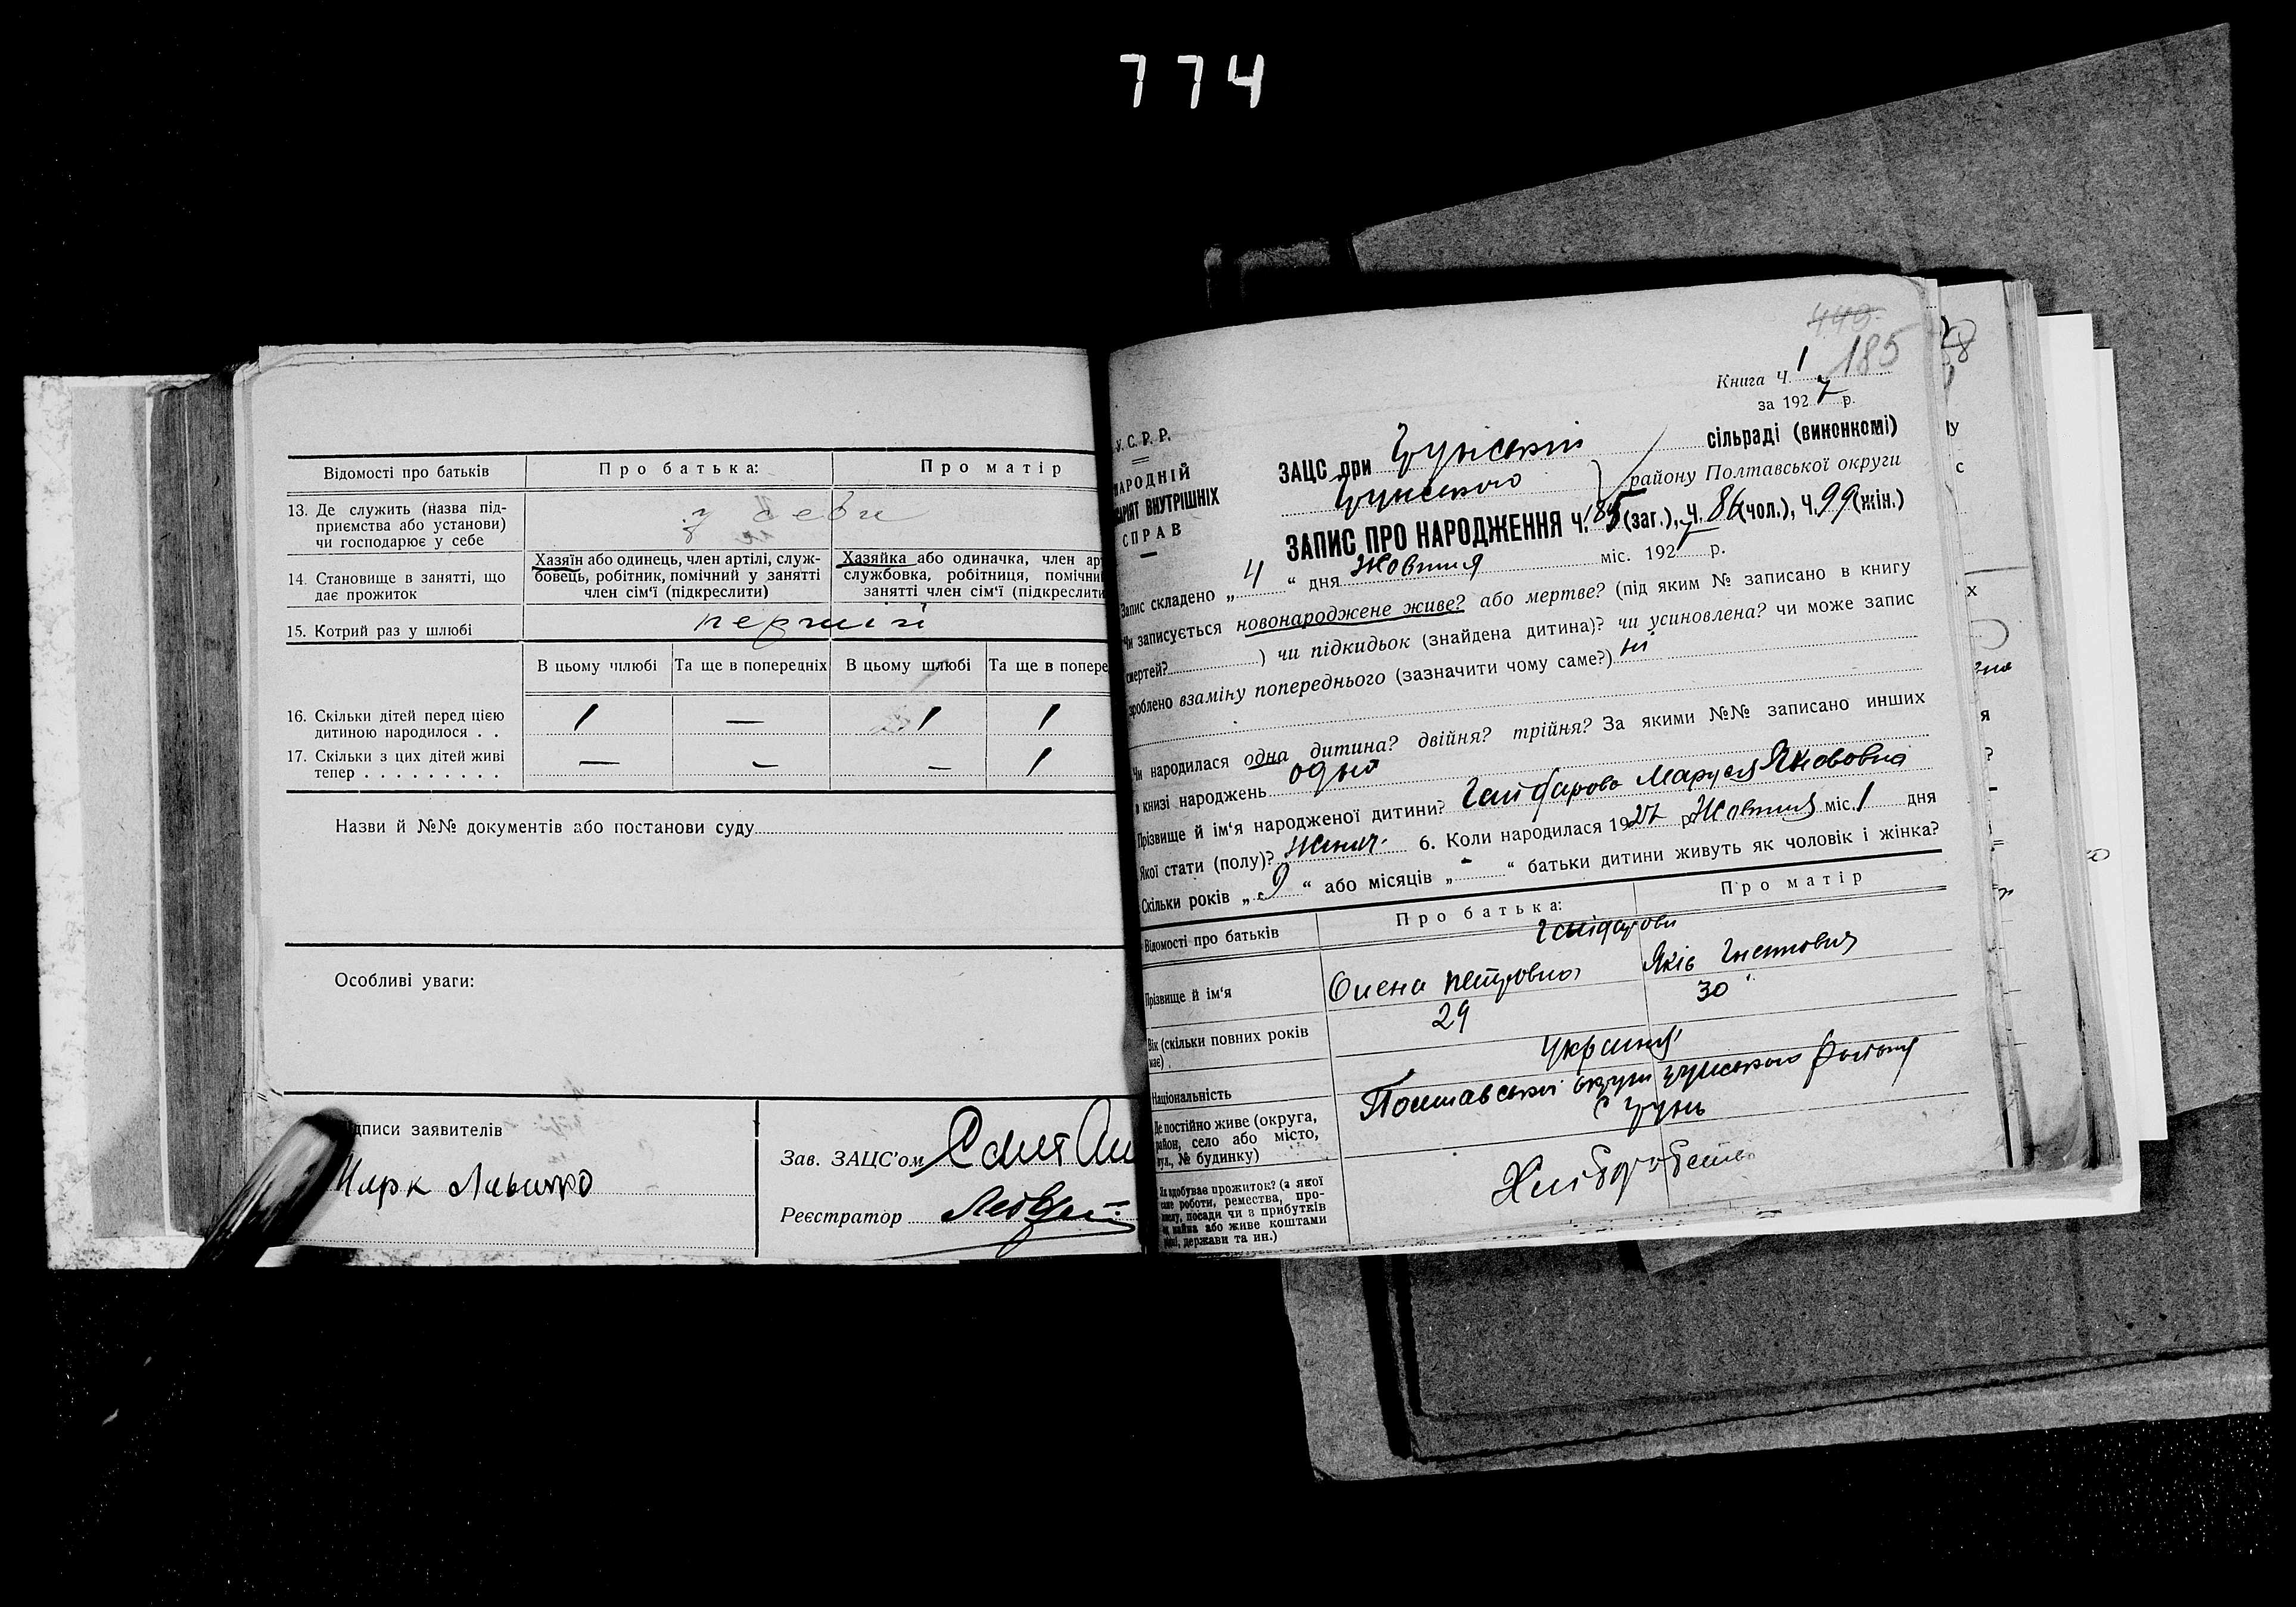 774
Відомості про батьків
Про батька:
Про матір
13. Де служить (назва під-
приємства або установи)
чи господарює у себе
у себе
14. Становище в занятті, що
дає прожиток
Хазяїн або одинець, член артілі, служ-
бовець, робітник, помічний у занятті
член сім'ї (підкреслити)
Хазяйка або одиначка, член ар
службовка, робітниця, помічни
занятті член сім'ї (підкреслити
15. Котрий раз у шлюбі
первий
В цьому шлюбі
Та ще в попередніх
В цьому шлюбі
Та ще в попере
16. Скільки дітей перед цією
дитиною народилося . .
1 — 1 1
17. Скільки з цих дітей живі
тепер . . . . . . . . .
— — — 1
Назви й №№ документів або постанови суду
Особливі уваги:
дписи заявителів
Зав. ЗАЦС'ом
Реєстратор
449
185
Книга Ч. 1
за 1927 р.
У.С.Р.Р.
НАРОДНІЙ
САРІЯТ ВНУТРІШНІХ
СПРАВ
ЗАЦС при Грунській сільраді (виконкомі)
Грунського району Полтавської округи
ЗАПИС ПРО НАРОДЖЕННЯ Ч. 185 (заг.), Ч. 86 (чол.), Ч. 99 (жін.)
Запис складено „ 4 “ дня Жовтня міс. 1927 р.
Чи записується новонароджене живе? або мертве? (під яким № записано в книгу
смертей? ) чи підкидьок (знайдена дитина)? чи усиновлена? чи може запис
зроблено взаміну попереднього (зазначити чому саме?) ні
Чи народилася одна дитина? двійня? трійня? За якими №№ записано инших
в книзі народжень одна
Прізвище й ім'я народженої дитини? Гайдарова Маруся Якововна
Якої стати (полу)? Жіноч. 6. Коли народилася 1927 р. Жовтня міс. 1 дня
Скільки років „ 9 “ або місяців „ - “ батьки дитини живуть як чоловік і жінка?
Відомості про батьків
Про батька:
Про матір
Прізвище й ім'я
Олена Петровна
Яків
Вік (скільки повних років
має)
29
30
Національність
Україн
Де постійно живе (округа,
район, село або місто,
вул., № будинку)
Полтавської округи Грунського району
с Грунь
Як здобуває прожиток? (з якої
саме роботи, ремества, про-
мислу, посади чи з прибутків
од майна або живе коштами
рідні, держави та ин.)
Хліборобство